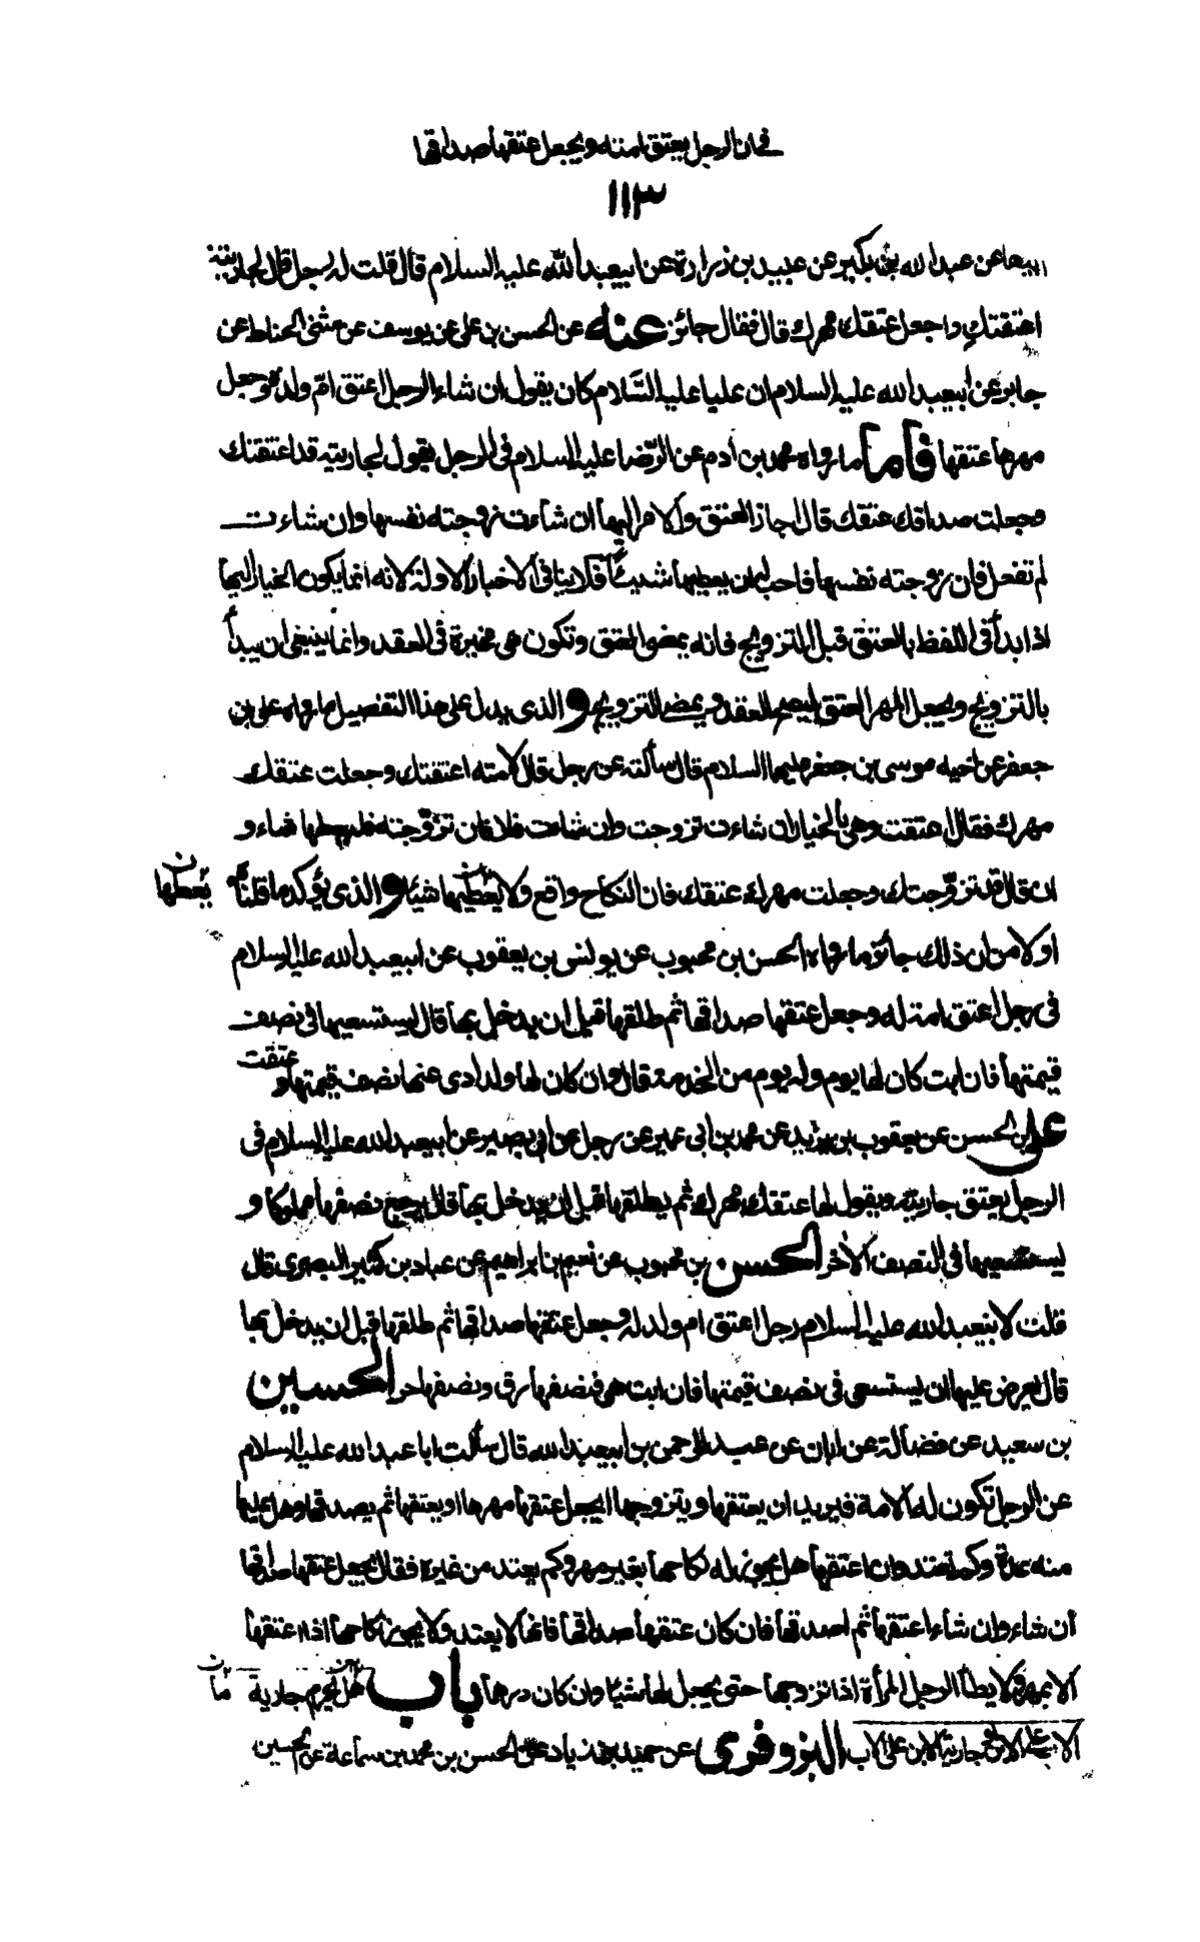 في ان الرجل يعتق امته ويجعل عتقها صداقها
١١٣
ابيهما عن عبد الله بن بكير عن عبيد بن زرارة عن ابيعبد الله عليه السلام قال قلت له رجل قال لجاريته
اعتقتك واجعل عتقك مهرك قال فقال جائز عنه عن الحسن بن علي عن يوسف عن مثنى الحناط عن
جابر عن ابيعبد الله عليه السلام ان عليا عليه السّلام كان يقول ان شاء الرجل اعتق امّ ولده وجعل
مهرها عتقها فاما ما رواه محمد بن ادم عن الرّضا عليه السلام في الرجل يقول لجاريته قد اعتقتك
وجعلت صداقك عتقك قال جاز العتق والامر اليها ان شاءت زوجته نفسها وان شاءت
لم تفعل فان زوجته نفسها فاحب له ان يعطيها شيئا فلا ينافي الاخبار الاولة لانه انما يكون الخيار اليها
اذا بدأ في اللفظ بالعتق قبل التزويج فانه يمضي العتق وتكون هي مخيرة في العقد وانما ينبغي ان يبدأ
بالتزويج ويجعل المهر العتق ليصح العقد ويمضي التزويج والذي يدل على هذا التفصيل ما رواه علي بن
جعفر عن اخيه موسى بن جعفر عليهما السلام قال سألته عن رجل قال لامته اعتقتك وجعلت عتقك
مهرك فقال اعتقت وهي بالخيار ان شاءت تزوجت وان شاءت فلا فان تزوّجته فليعطها شاء و
ان قال قد تزوّجتك وجعلت مهرك عتقك فان النكاح واقع ولا يعطيها شيئا والذي يؤكد ما قلناه يعطها ن
اولا من ان ذلك جائز ما رواه الحسن بن محبوب عن يونس بن يعقوب عن ابيعبد الله عليه السلام
في رجل اعتق امة له وجعل عتقها صداقها ثم طلقها قبل ان يدخل بها قال يستسعيها في نصف
قيمتها فان ابت كان لها يوم وله يوم من الخدمة قال وان كان لها ولد ادى عنها نصف قيمتها وعتقت
علي بن الحسن عن يعقوب بن يزيد عن محمد بن ابي عمير عن رجل عن ابي بصير عن ابيعبد الله عليه السلام في
الرجل يعتق جاريته ويقول لها عتقك مهرك ثم يطلقها قبل ان يدخل بها قال يرجع نصفها مملوكا و
يستسعيها في النصف الاخر الحسن بن محبوب عن نعيم بن ابراهيم عن عباد بن كثير البصري قال
قلت لابيعبد الله عليه السلام رجل اعتق ام ولد له وجعل عتقها صداقها ثم طلقها قبل ان يدخل بها
قال يعرض عليها ان يستسعى في نصف قيمتها فان ابت هي فنصفها رق ونصفها حر الحسين
بن سعيد عن فضالة عن ابان عن عبد الرحمن بن ابيعبد الله قال سألت ابا عبد الله عليه السلام
عن الرجل تكون له الامة فيريد ان يعتقها ويتزوجها ايجعل عتقها مهرها او يعتقها ثم يصدقها وهل عليها
منه عدة وكم تعتد وان اعتقها هل يجوز له نكاحها بغير مهر وكم يعتد من غيره فقال يجعل عتقها صداقها
ان شاء وان شاء اعتقها ثم اصدقها فان كان عتقها صداقها فانها لا يعتد ولا يجوز نكاحها اذا اعتقها
الا بمهر ولا يطأ الرجل المرأة اذا تزوجها حتى يجعل لها شيئا وان كان درهما باب هل يحرم جارية
الاب على الابن وجارية الابن على الاب البزوفري عن حميد بن زياد عن الحسن بن محمد بن سماعة عن الحسين